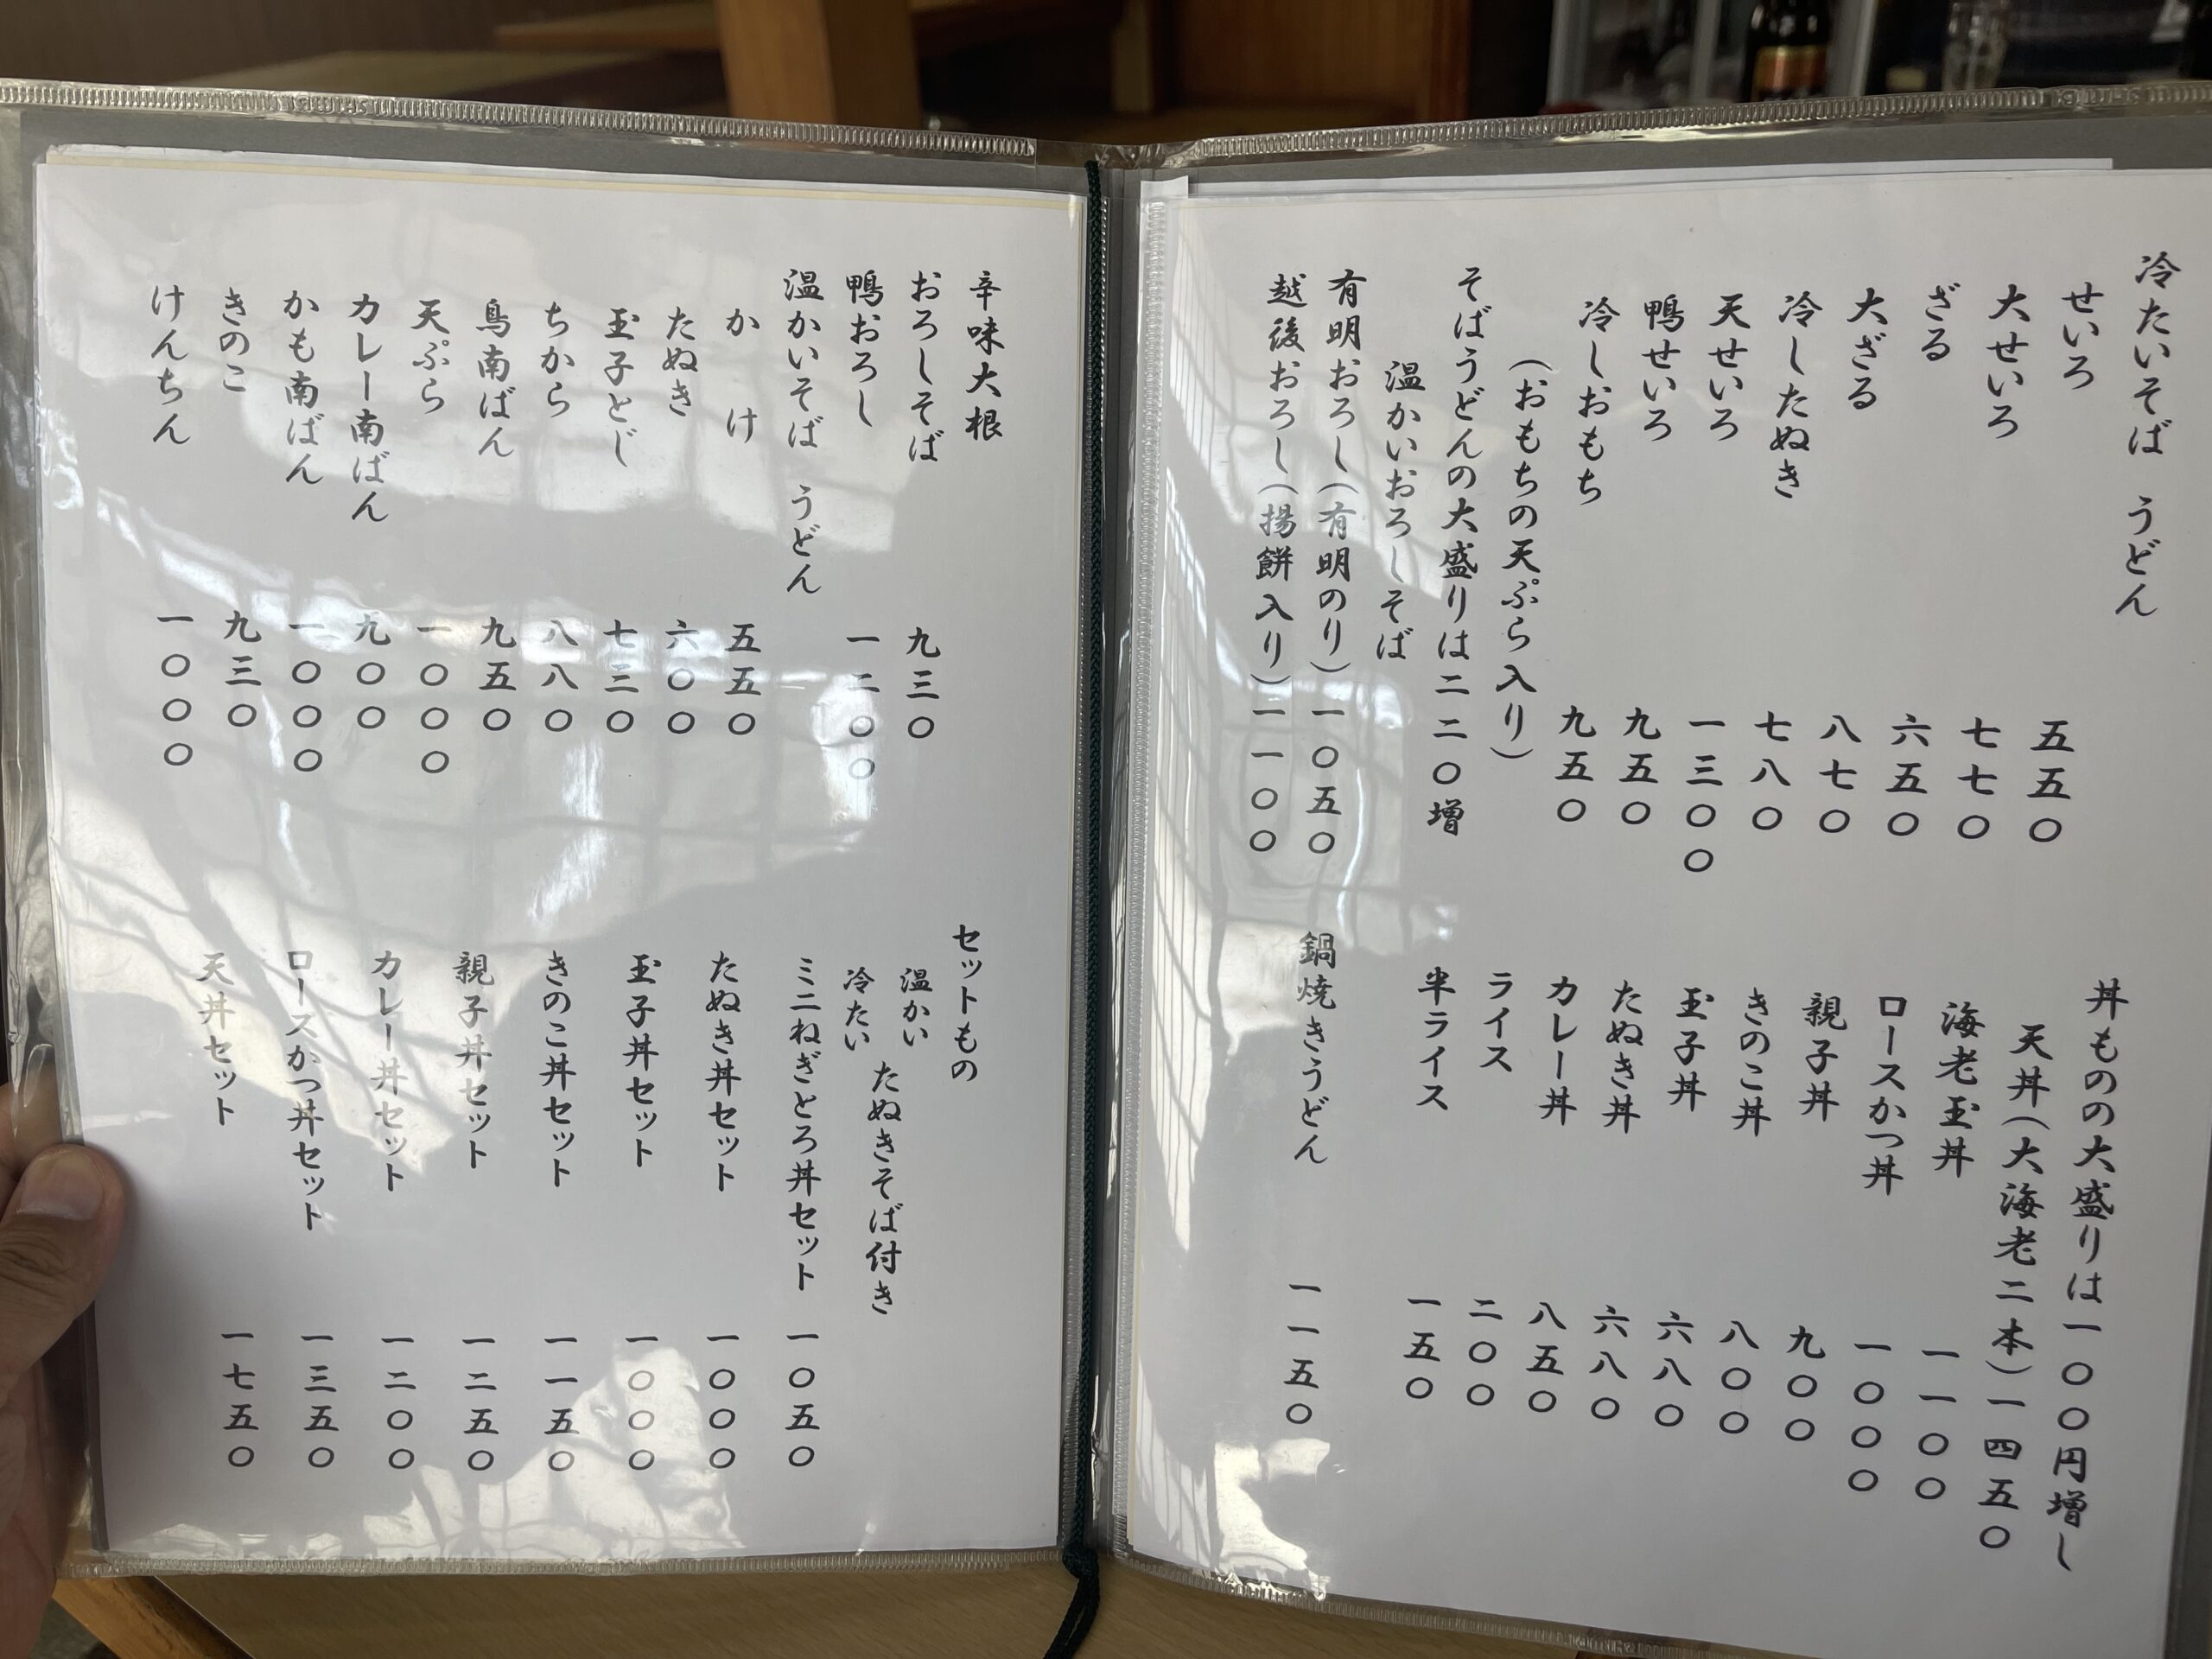 冷たいそば うどん
せいろ 五五〇
大せいろ 七七〇
ざる 六五〇
大ざる 八七〇
冷したぬき 七八〇
天せいろ 一三〇〇
鴨せいろ 九五〇
冷しおもち 九五〇
(おもちの天ぷら入り)
そばうどんの大盛りは二二〇増
温かいおろしそば
有明おろし(有明のり)一〇五〇
越後おろし(揚餅入り)一一〇〇
丼ものの大盛りは一〇〇円増し
天丼(大海老二本)一四五〇
海老玉丼 一一〇〇
ロースかつ丼 一〇〇〇
親子丼 九〇〇
きのこ丼 八〇〇
玉子丼 六八〇
たぬき丼 六八〇
カレー丼 八五〇
ライス 二〇〇
半ライス 一五〇
鍋焼きうどん 一一五〇
辛味大根
おろしそば 九三〇
鴨おろし 一二〇〇
温かいそば うどん
かけ 五五〇
たぬき 六〇〇
玉子とじ 七三〇
ちから 八八〇
鳥南ばん 九五〇
天ぷら 一〇〇〇
カレー南ばん 九〇〇
かも南ばん 一〇〇〇
きのこ 九三〇
けんちん 一〇〇〇
セットもの
温かい
冷たい
たぬきそば付き
ミニねぎとろ丼セット 一〇五〇
たぬき丼セット 一〇〇〇
玉子丼セット 一〇〇〇
きのこ丼セット 一一五〇
親子丼セット 一二五〇
カレー丼セット 一二〇〇
ロースかつ丼セット 一三五〇
天丼セット 一七五〇